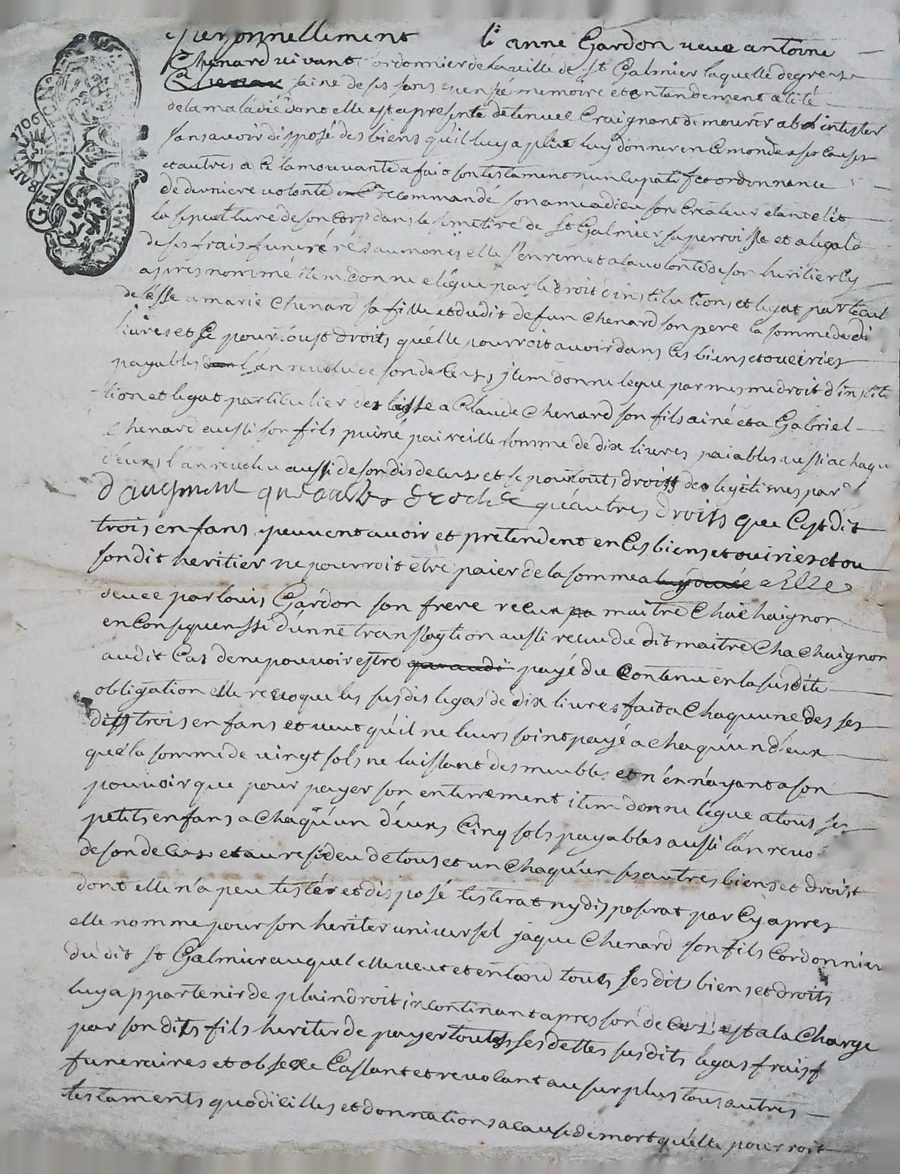 BAIL 1706
GEN
personnellement anne Gardon veue antoine
Chenard vivant Cordonnier de la ville de St Galmier laquelle de gre
saine de ses sens memoire et entandement
de la maladie dont elle est a presente detenue Craignant de mourir ab intester
sans avoir disposé des biens qu'il luy a pleu luy donner en ce monde a ses causes
et autres a ce la mouvante a faio son testament nuncupatif et ordonnance
de derniere volonté recommandé son ame a dieu son Createur elant elit
la sepulture de son corps dans le simetire de St Galmier sa perroisse et a legald
de ses frais funereres aumones elle s'en remet a la volonte de son heritier cy
apres nommé item donne elegue par le droit d'institutions et legat particul
delesse a marie Chenard sa fille et dudit defun Chenard son pere la somme de di
livres et ce pour tous droits qu'elle pourroit avoir dans ces biens et oveiries
payables l'an revolu de son deces item donne legue par mesme droit d'instit
tion et legat particulier et a Claude Chenard son fils ainé et a Gabriel
Chenard aussi son fils puiné paireille somme de dix livres paiables aussi a chaqu
d'eux l'an revolu aussi de son dis deces et ce pour tout droits des legitimes par
d'augment qu'autres droits que cest dit
trois enfans peuvent avoir et pretendent en ces biens et oviries et ou
son dit heritier ne pourroit etre paier de la somme a Elle
deuee par louis Gardon son frere receux maitre Chachaignon
en Consequensse d'unne transaytion aussi receu du dit maitre Chachaignon
audit Cas de ne pouvoir estre payé du Contenu en la susdite
obligation elle revoque les susdis legas de dix livres fait a Chaqune des ses
dits trois enfans et veut qu'il ne leurs soint payé a chaqu'un d'eux
que la somme de vingt sols ne laissant des meubles et n'en n'ayant a son
pouvoir que pour payer son enterrement item donne legue a tous ses
petits enfans a Chaqu'un d'eux Cinq sols payables aussi l'an revo
de son deces et au resideu de tous et un chaqu'un ses autres biens et droist
dont elle n'a peu tester et disposé testerat ny disposerat par cy apres
elle nomme pour son heriter universel jaque Chenard son fils Cordonnier
du dit St Galmier auquel elle veut et entand touts ses dit bien set droits
luy appartenir de plain droit incontinant apres son deces et a la Charge
par son dits fils heriter de payer toutes ses dettes susdits legas fraist
funeraires et obseqe Cassant et revolant au surplus tous autres
testaments quodicilles et donnations a cause de mort qu'elle pouerroit